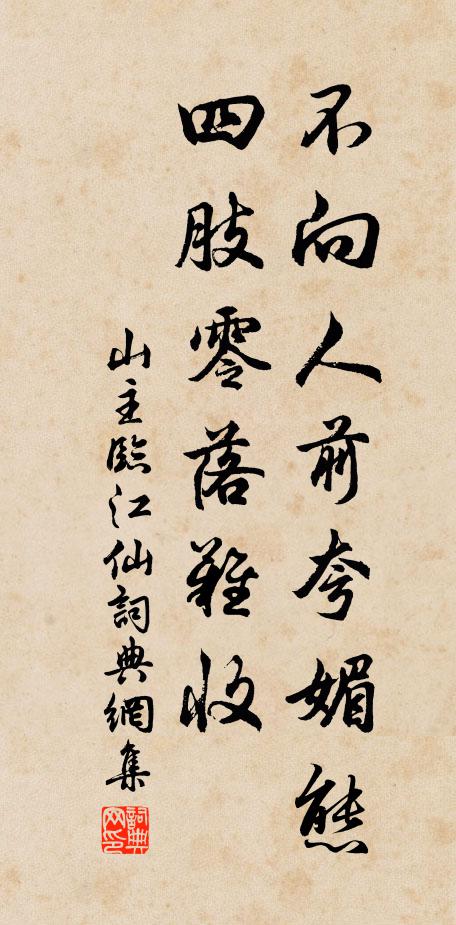 不向人前夸媚態
四肢零落難收
山主臨江仙詞典網集
詞典网印